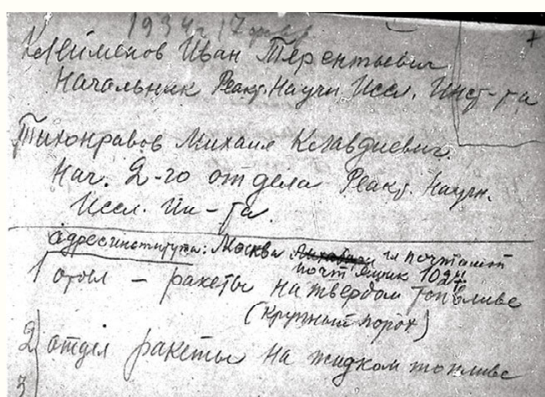 1934 г 17 фев
Клейменов Иван Терентьевич
Начальник Реакт. Научн Иссл. Инст-та
Тихонравов Михаил Клавдиевич.
Нач. 2-го отдела Реакт. Научн.
Иссл. Ин-та.
адрес института: Москва гл почтамт
почт ящик 102
1 отдел — ракеты на твердом топливе
(крупный порох)
2) отдел ракеты на жидком топливе
3